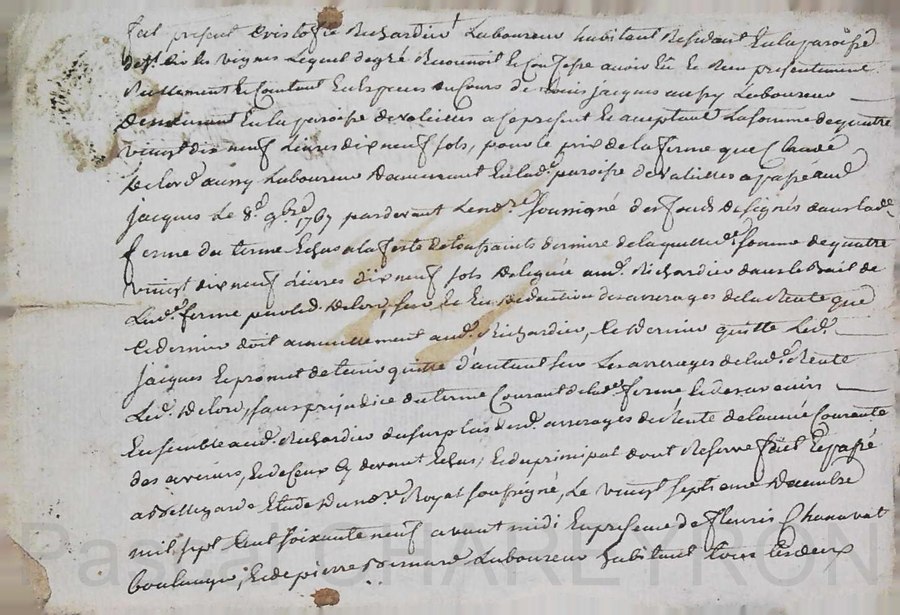 fut présent Cristofle Richardier Laboureur habitant Résidant En la paroisse
de St les vignes Lequel de gré Reconnoit et Confesse avoir Eu et Receu présentement
Réellement et Comptant En Espèces du Cours de Louis Jacques aunry Laboureur
Demeurant En la paroisse de valeilles a Ce présent Et acceptant La somme de quatre
vingt dix neuf Livres dix neuf sols, pour le prix de la ferme que
Delord aunry Laboureur Demeurant En lad. paroisse de valeilles a passé aud.
Jacques Le 8e 9bre 1767 pardevant Le no.re soussigné des fonds designés dans lad.e
ferme du terme Echus a la feste de toussaints derniere de laquelle d. somme de quatre
vingt dix neuf Livres dix neuf sols deleguée aud. Richardier dans le Bail de
Lad. ferme par led. Delord, sur Et En deduction des arrerages de la Rente que
Ce dernier doit annuellement aud. Richardier, Ce dernier quitte Led.
Jacques Et promet de tenir quitte d'autant sur Les arrerages de lad. Rente
Led. Delord, sans prejudice du terme Courant de lad. ferme Et de ceux a venir
Ensemble aud. Richardier du surplus des d. arrerages de Rente de l'année Courante
des avenirs, Et de Ceux Cy devant Echus, Et du principal dont Reserve fait Et passé
a Bellegarde Etude du no.re Royal soussigné, Le vingt septieme Decembre
mil sept Cent soixante neuf avant midi En presence de fleuris Chanavat
boulanger, Et de pierre Laboureur habitant tous Les deux
Pascal CHAREYRON